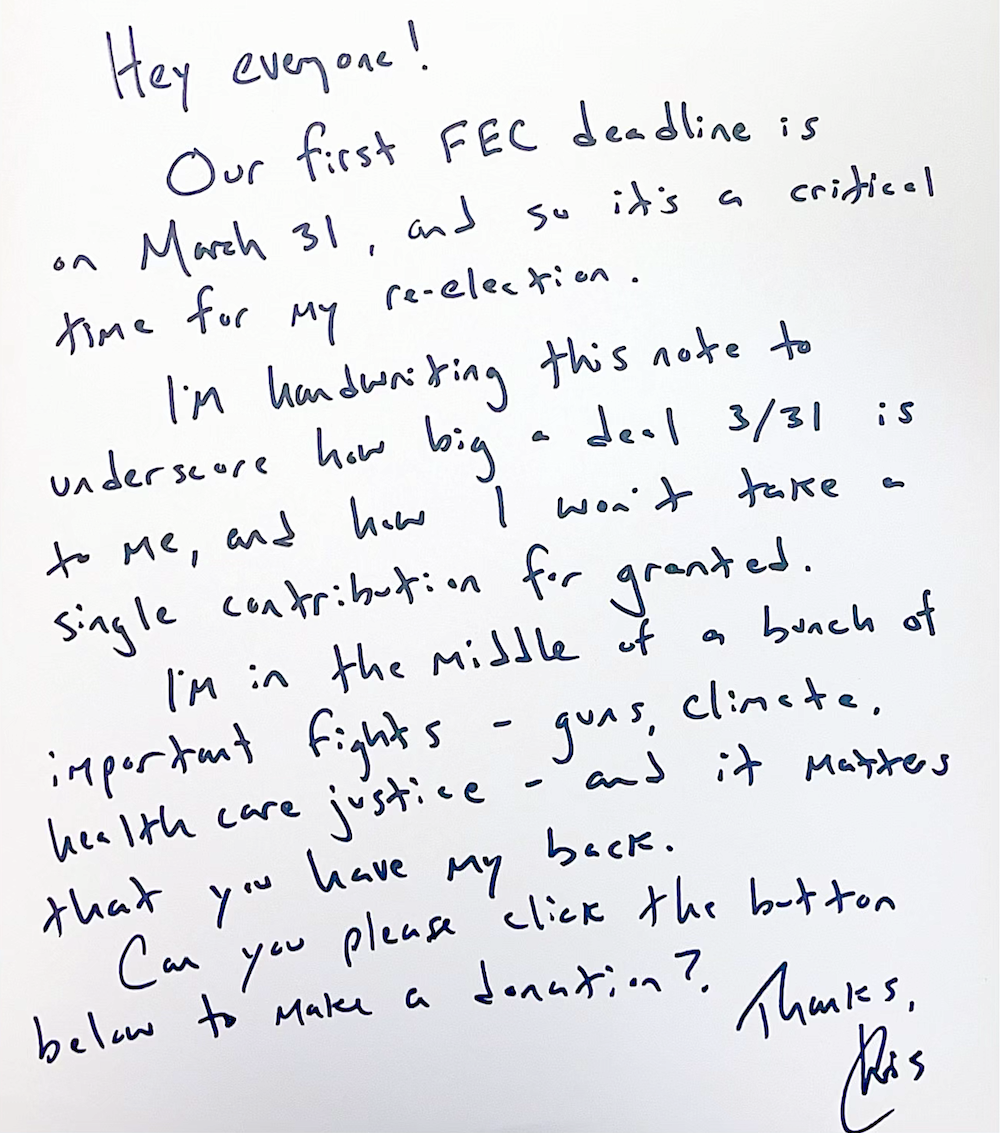 Hey everyone!
Our first FEC deadline is
on March 31, and so it's a critical
time for my re-election.
I'm handwriting this note to
underscore how big a deal 3/31 is
to me, and how I won't take a
single contribution for granted.
I'm in the middle of a bunch of
important fights - guns, climate,
health care justice - and it matters
that you have my back.
Can you please click the button
below to make a donation?
Thanks,
Chris